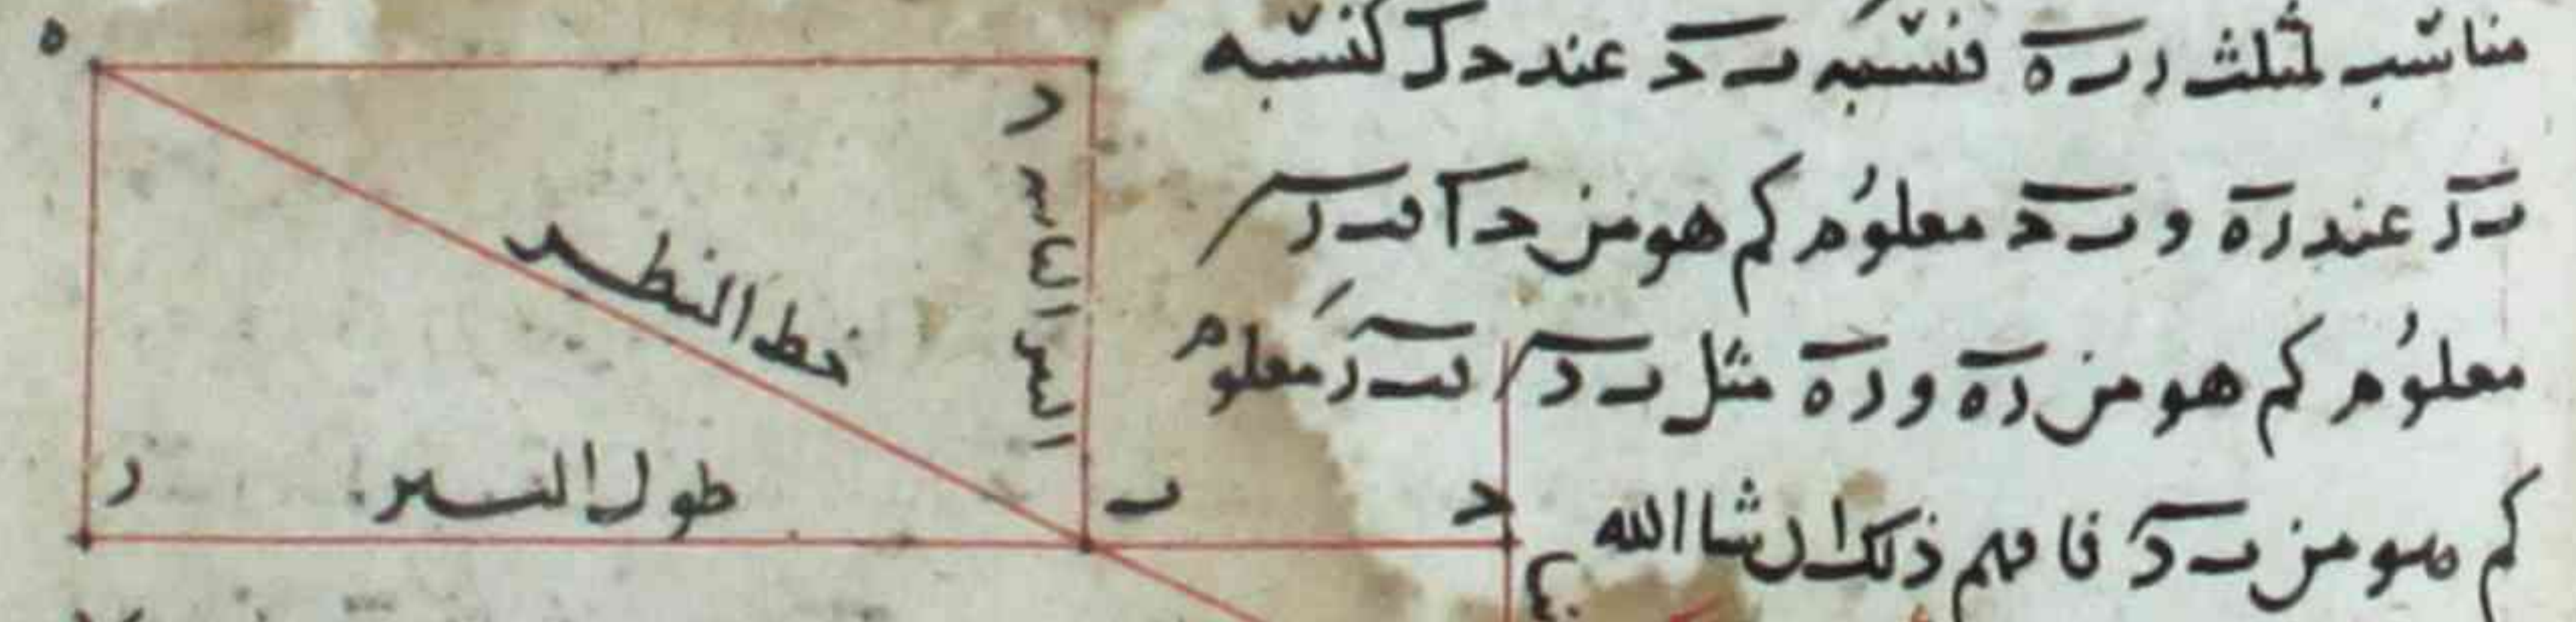 مناسب لمثلث ر ب ه فنسبة ب د عند د ك كنسبة
ب ر عند ر ه و ب د معلوم كم هو من د ا ف ب ر
معلوم كم هو من ر ه و ر ه مثل ب د ف ب ر معلوم
كم هو من ب د فافهم ذلك ان شا الله
ه
د
خط النظر
طول البير
ر
ب
د